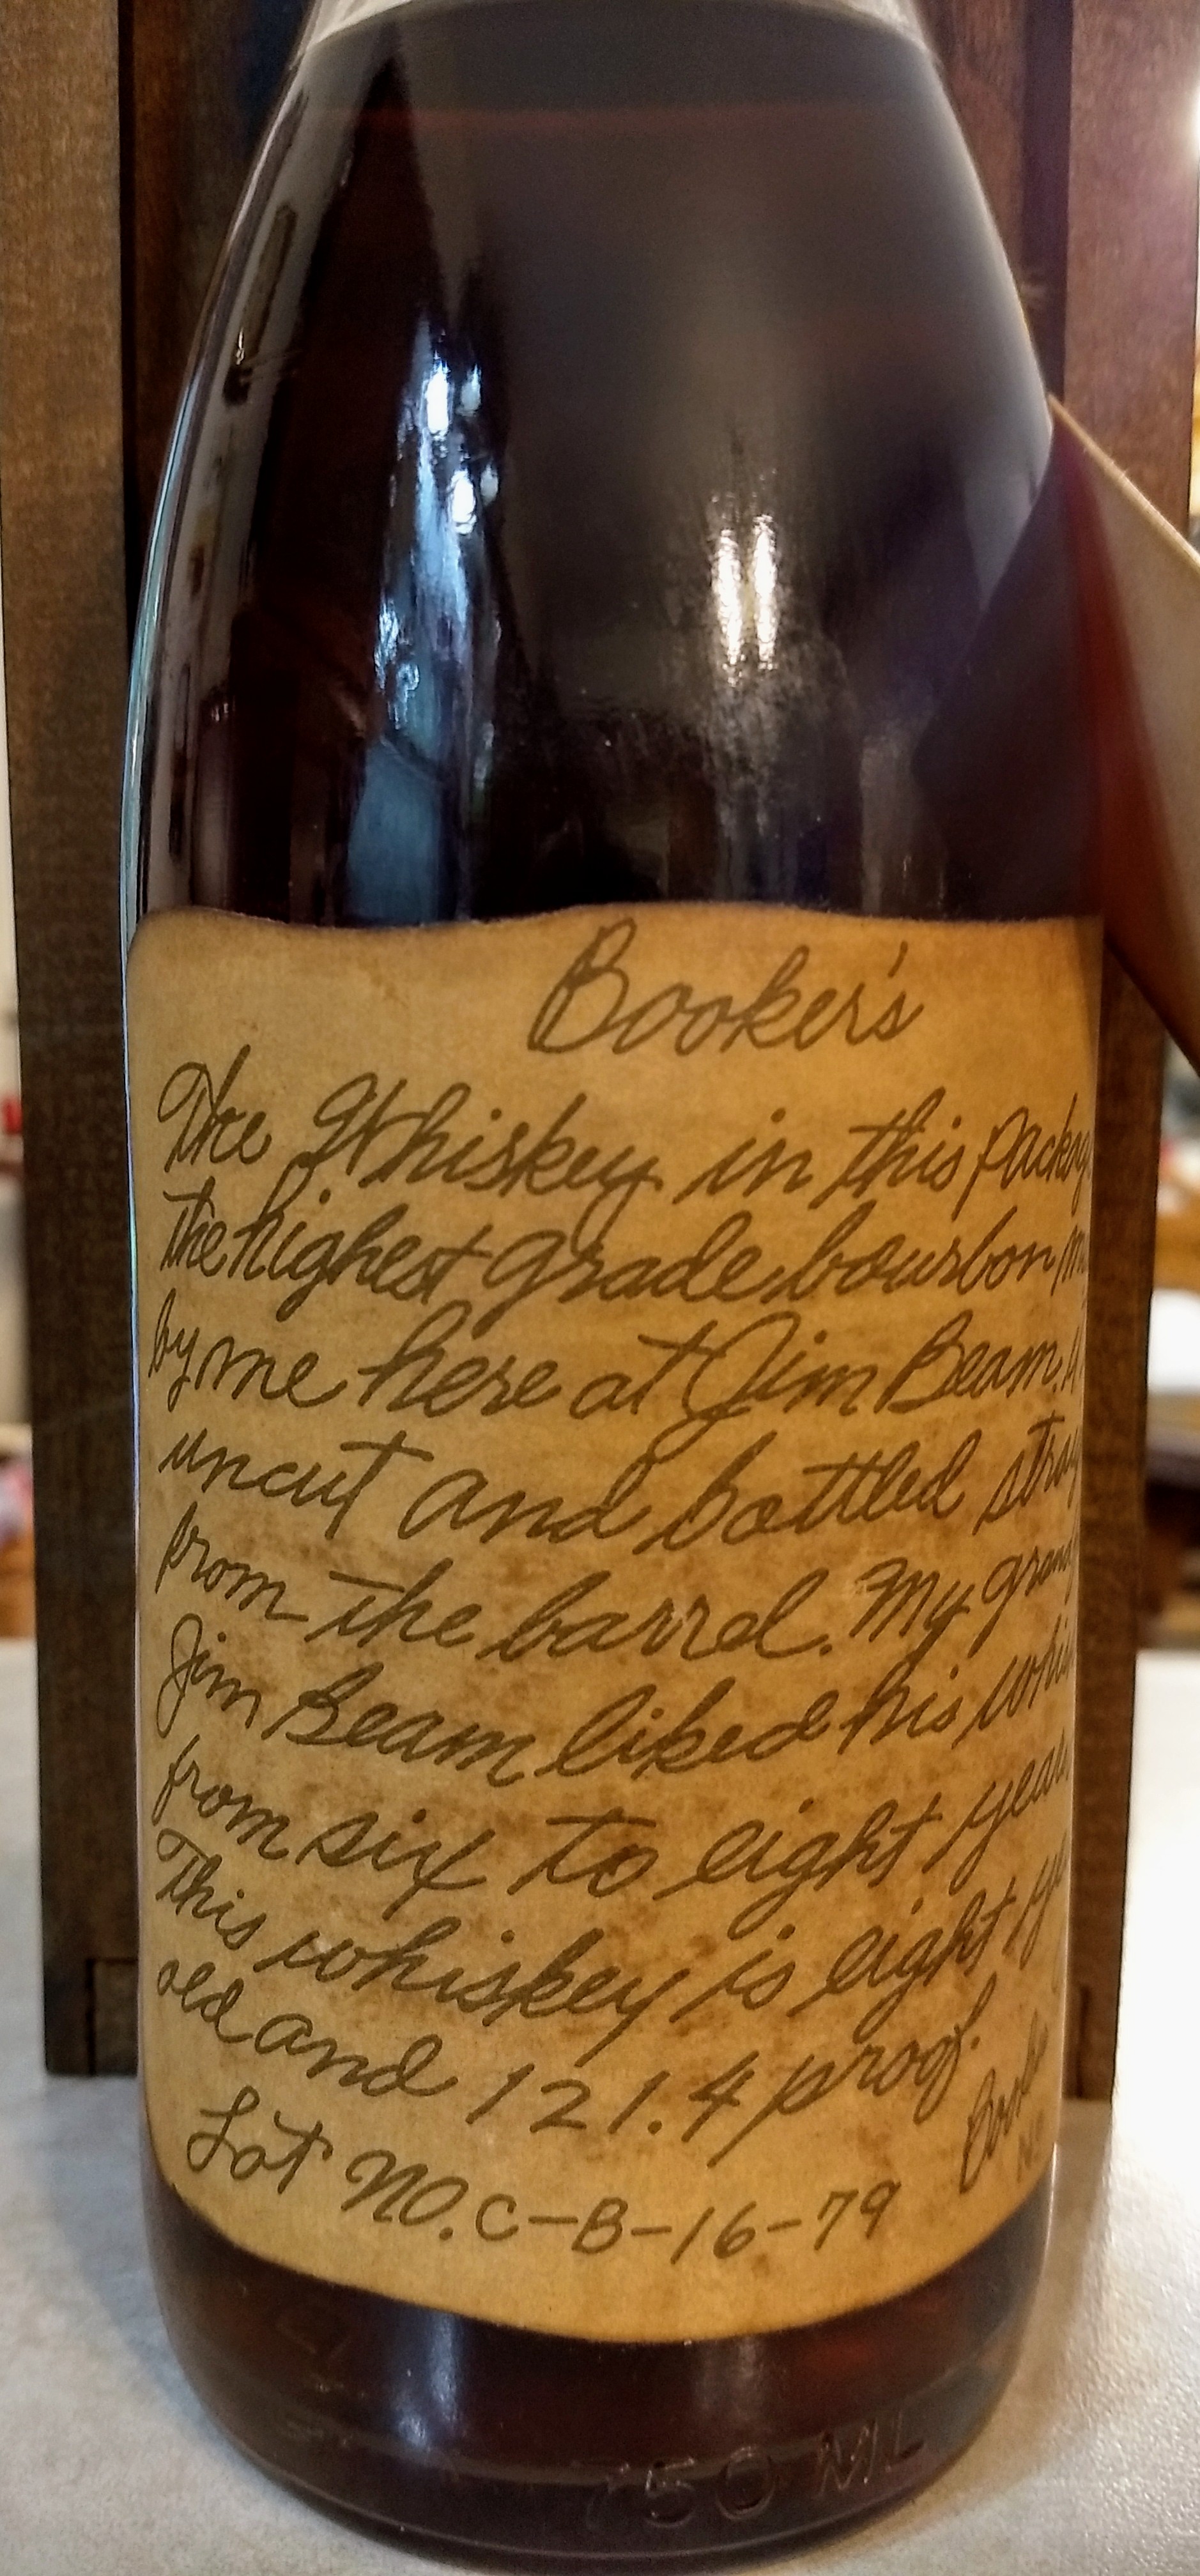 Booker's
The Whiskey in this
the highest grade bourbon
by me here at Jim Beam.
uncut and bottled
from the barrel. My
Jim Beam liked his
from six to eight
This whiskey is eight
old and 121.4 proof.
Lot NO. C-B-16-79
750 ML